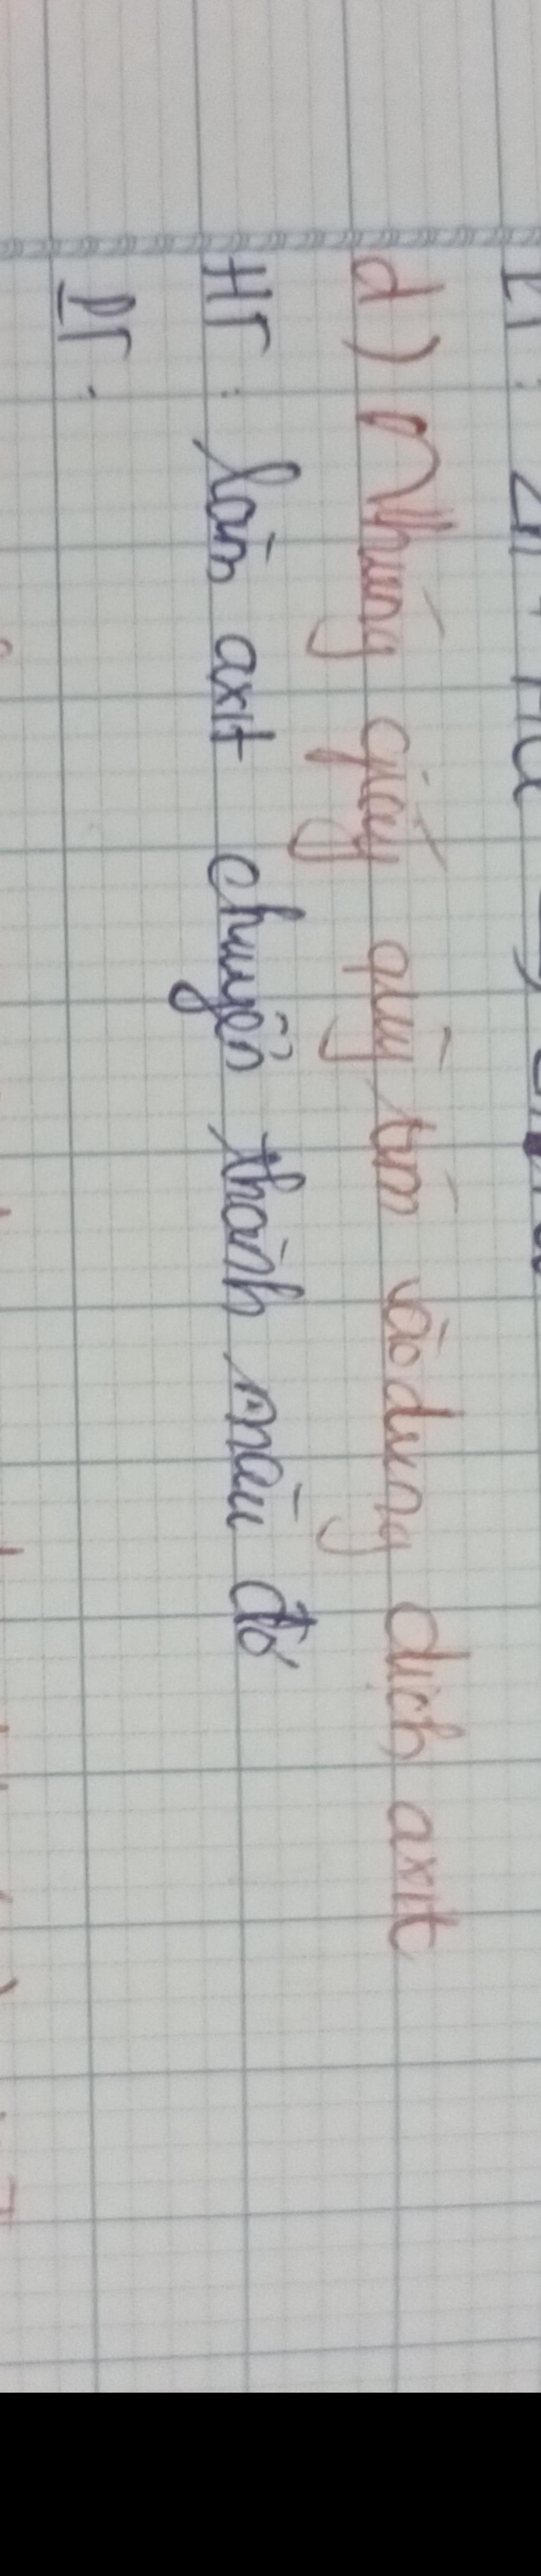 d) Nhúng giấy quỳ tím vào dung dịch axit
HT: làm axit chuyển thành màu đỏ
PT: